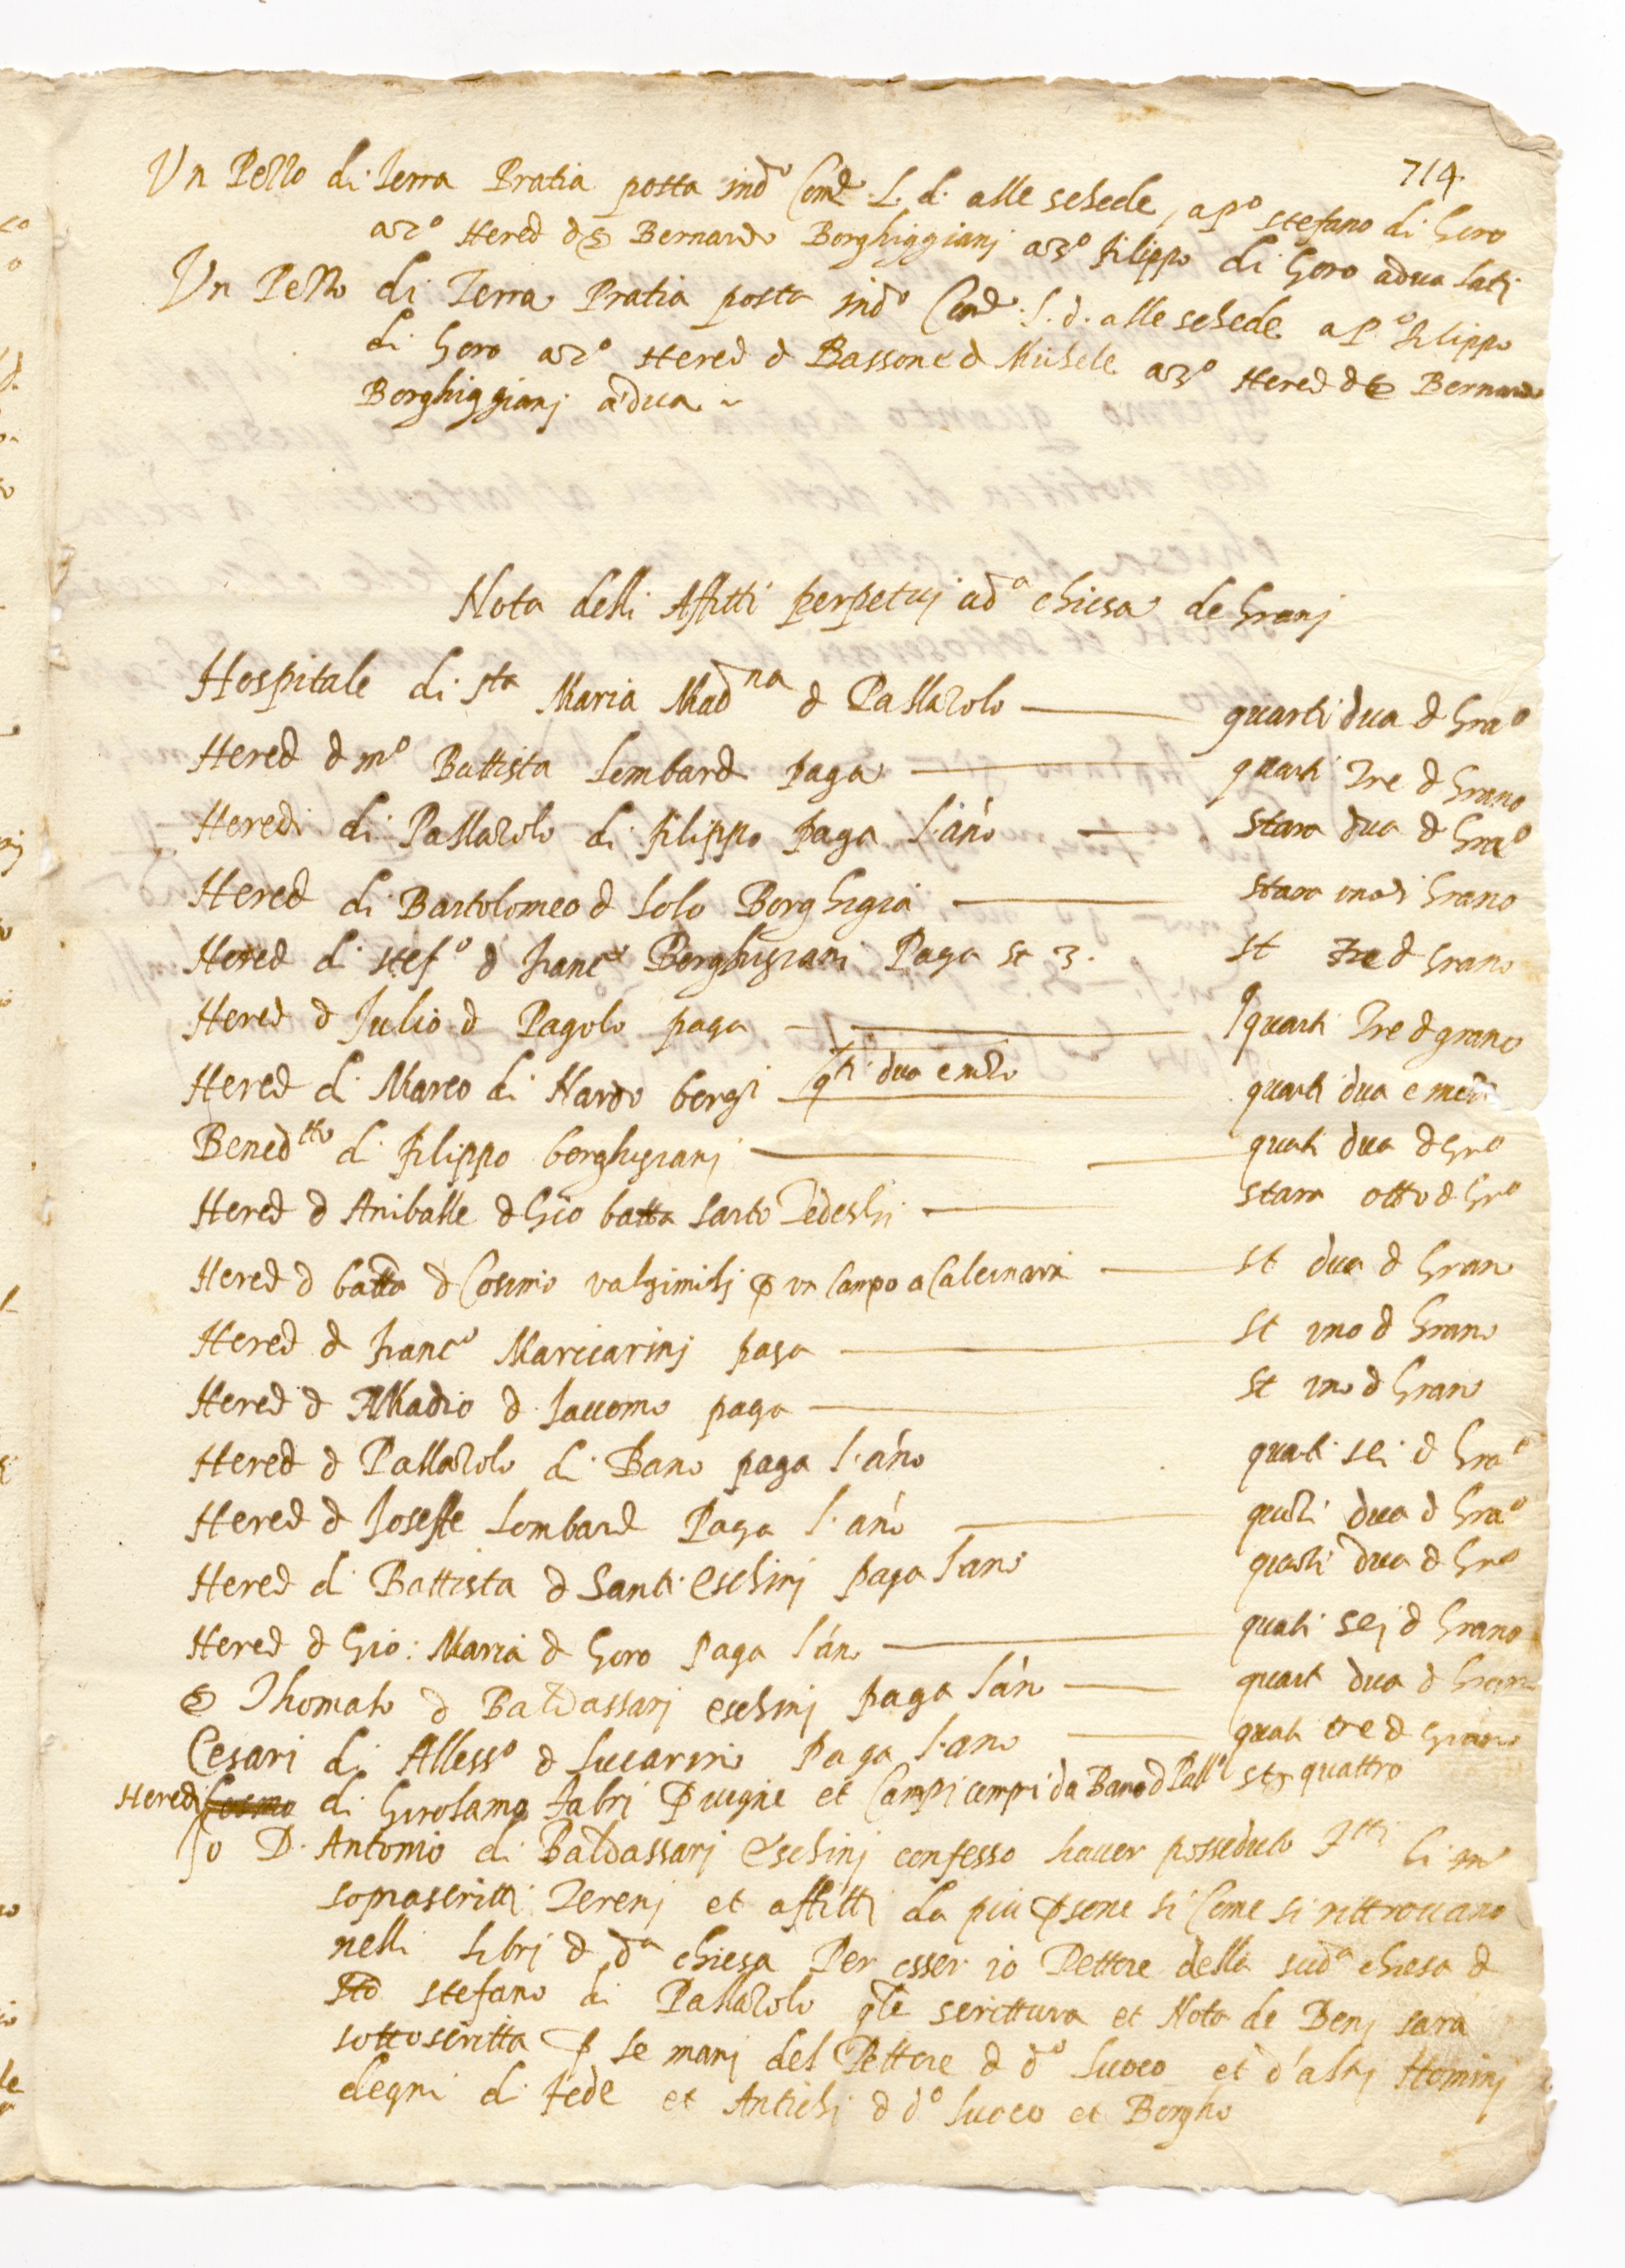 714.
Un Pezzo di Terra Pratia posta in d.o Com.e L. d. alle schede, a p.o stefano di Goro
a 2.o Hered d S Bernardo Borghiggianj a 3.o filippo di Goro a dua latj
Un Pezzo di Terra Pratia posta in d.o Com.e L. d. alle schede a p.o filippo
di Goro a 2.o Hered d Bassone d Michele a 3.o Hered d S Bernardo
Borghiggianj a dua
Nota delli Affitti perpetuj a d.a chiesa de Granj
Hospitale di S.ta Maria Mad.na d Pallazolo quarti dua d Gra.o
Hered d m.o Battista Lombard paga quarti Tre d Grano
Heredi di Pallazolo di filippo paga l'ano stara dua d Gra.o
Hered di Bartolomeo d Lolo Borghigia staro uno di Grano
Hered di Stef.o d Franc.o Borghigiani Paga St 3. St Tre d Grano
Hered d Julio d Pagolo paga quarti Tre d grano
Hered di Marco di Nardo borgi q.ti dua e mezo quarti dua e mezo
Bened.tto di filippo borghigianj quarti dua d Gr.o
Hered d Aniballe d Gio batta sarto Tedeschi stara otto d Gr.o
Hered d batta d Cosimo valgimilj p un Campo a Calcinara St dua d Grano
Hered d Franc.o Marccarinj paga St uno d Grano
Hered d Amadio d Jacomo paga St uno d Grano
Hered d Pallazolo di Bano paga l'ano quarti sei d Gra.o
Hered d Joseffe Lombard Paga l'ano quarti dua d Gra.o
Hered di Battista d Santi eschinj paga l'ano quarti dua d Gr.o
Hered d Gio: Maria d Goro Paga l'ano quarti sej d Grano
S Thomaso d Baldassarj eschinj paga l'ano quarti dua d Grano
Cesari di Aless.o d Lucarino Paga l'ano quarti tre d Grano
Heredi Cosmo di Girolamo fabri p vigne et Campi compri da Bano d Pall.o St quattro
Jo D. Antonio di Baldassarj Eschinj confesso haver posseduto tutti li
sopra scritti Terenj et affitti da piu psone si Come si rittrovano
nelli libri d d.a chiesa Per esser io Rettore della sud.a chiesa d
S.to stefano di Pallazolo q.le scrittura et Nota de Benj sarà
sottoscritta p le manj del Rettore d d.o Luoco et d'altrj Hominj
degni di fede et Antichj d d.o Luoco et Borgho